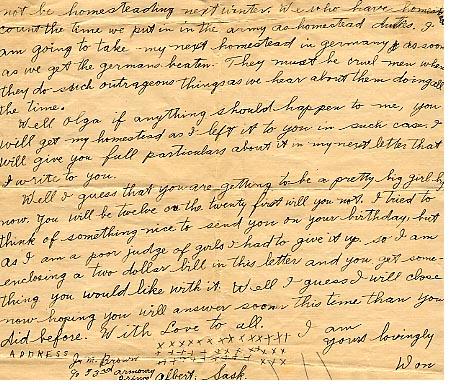 not be homesteading next winter. We who have
count the time we put in in the army as homestead duties. I
am going to take my next homestead in germany as soon
as we get the germans beaten. They must be cruel men when
they do such outrageous things as we hear about them doing all
the time.
Well Olga if anything should happen to me, you
will get my homestead as I left it to you in such case. I
will give you full particulars about it in my next letter that
I write to you.
Well I guess that you are getting to be a pretty big girl by
now. You will be twelve on the twenty first will you not. I tried to
think of something nice to send you on your birthday but
as I am a poor judge of girls I had to give it up. so I am
enclosing a two dollar bill in this letter and you get some-
thing you would like with it. Well I guess I will close
now hoping you will answer soon this time than you
did before. With Love to all. I am
yours lovingly
ADDRESS
Brown
Albert, Sask.